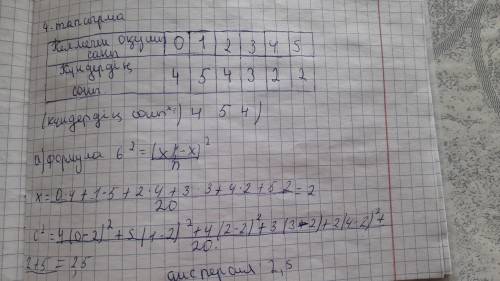 4-тапсырма
Келмеген оқушы саны 0 1 2 3 4 5
Күндердің саны 4 5 4 3 2 2
(күндердің саны) 4 5 4)
а) формула б² = (x₁-x)²/n
x = 0·4+1·5+2·4+3·3+4·2+5·2/20 = 2
б² = 4(0-2)²+5(1-2)²+4(2-2)²+3(3-2)+2(4-2)²+/20
2+5 = 2,5
дисперсия 2,5